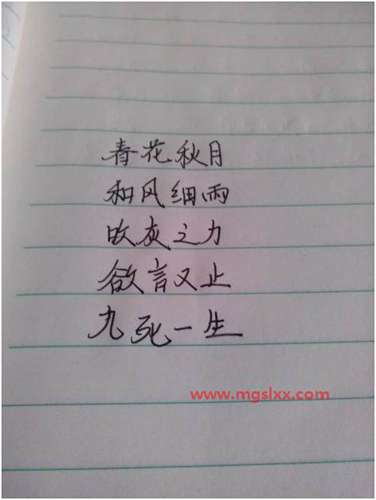 春花秋月
和风细雨
吹灰之力
欲言又止
九死一生
www.mgslxx.com